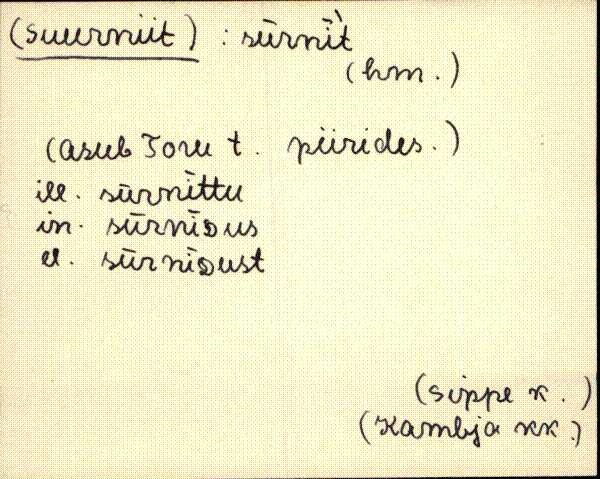 (Suurniit) : sūrnìt̀
(hm.)
(asub Toru t. piirides.)
ill. sūrnìttu
in. sūrnīᴅus
el. sūrnīᴅust
(Sippe k.)
(Kambja kk.)